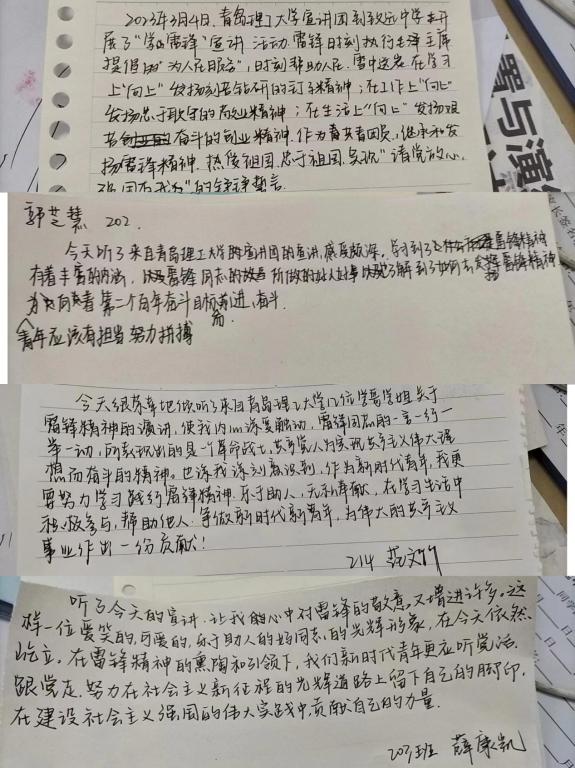 2023年3月4日,青岛理工大学宣讲团到致远中学开
展了"学习雷锋"宣讲活动.雷锋时刻执行毛泽主席
提倡的"为人民服务",时刻帮助人民.雪中送炭.在学习
上"向上"发扬刻苦钻研的钉子精神;在工作上"向上"
发扬忠于职守的敬业精神;在生活上"向上"发扬艰
苦奋斗的创业精神.作为青共青团员,继承和发
扬雷锋精神.热爱祖国.忠于祖国.实现"请党放心,
强国有我"的铮铮誓言.
郭芝慧 202.
今天听了来自青岛理工大学的宣讲团的宣讲,感受颇深.学习到了雷锋精神
有着丰富的内涵,雷锋同志的所做的让我了解到了如何去发扬雷锋精神
为向着第二个百年奋斗目标前进,奋斗.
青年应该有担当努力拼搏
今天很荣幸地倾听了来自青岛理工大学几位学哥学姐关于
雷锋精神的演讲,使我内心深受触动,雷锋同志的一言一行一
举一动,所表现出的是一个革命战士,共产党人为实现共产主义伟大理
想而奋斗的精神。也让我深刻意识到,作为新时代青年,我更
要努力学习践行雷锋精神.乐于助人,无私奉献,在学习生活中
积极参与,帮助他人.争做新时代新青年,为伟大的共产主义
事业作出一份贡献!
214 范文竹
听了今天的宣讲.让我的心中对雷锋的敬意又增进许多。这
样一位爱笑的,可爱的,乐于助人的好同志的光辉形象,在今天依然
屹立。在雷锋精神的熏陶和引领下,我们新时代青年更应听党话.
跟党走.努力在社会主义新征程的光辉道路上留下自己的脚印.
在建设社会主义强国的伟大实践中,贡献自己的力量.
207班 薛康凯